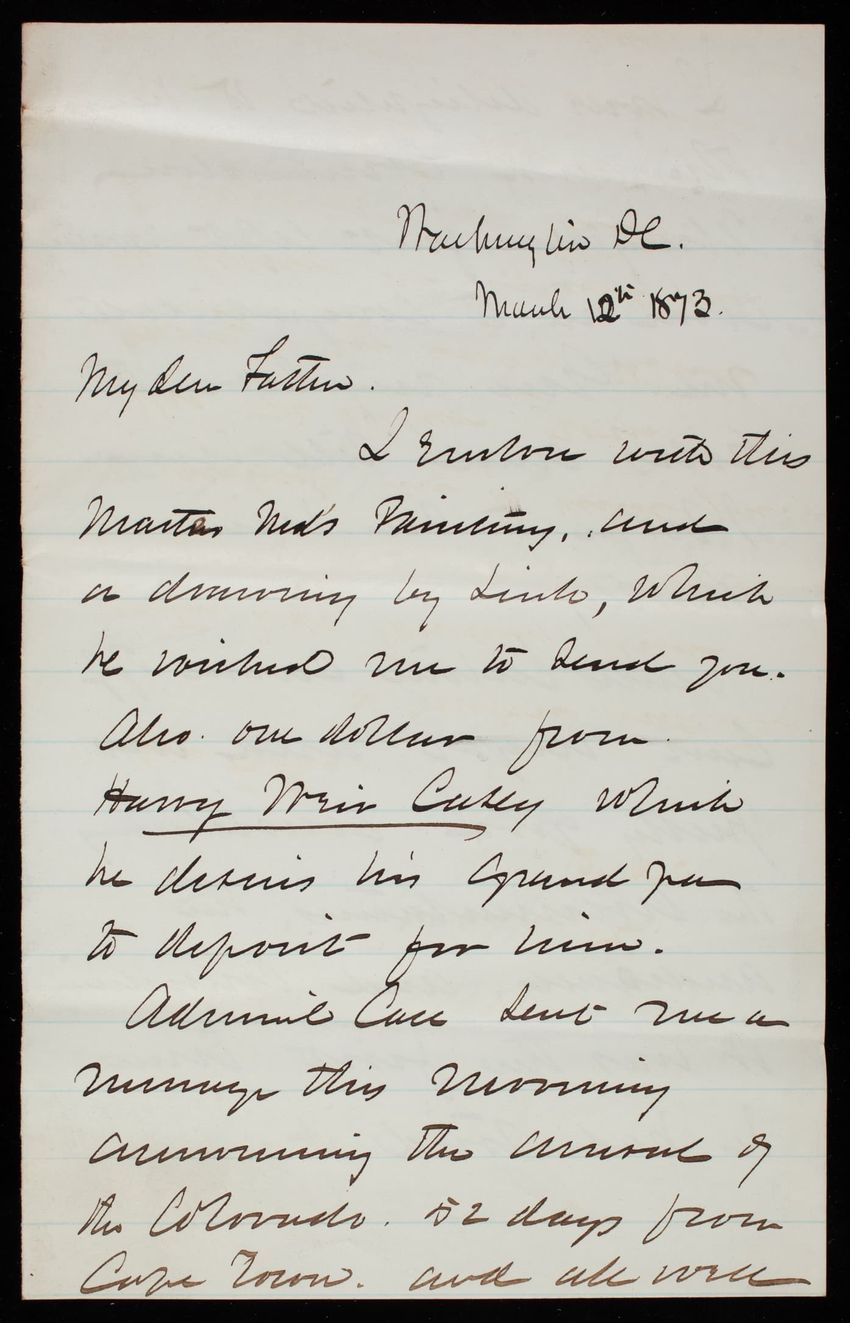 Washington DC.
March 12th 1873.
My dear Father.
I Enclose with this
Master Ned's Painting, and
a drawing by Link, which
he wished me to send you.
Also. one dollar from
Harry Weir Casey which
he desires his Grand pa
to deposit for him.
Admiral Case sent me a
message this morning
announcing the arrival of
the Colorado. 52 days from
Cape Town. and all well